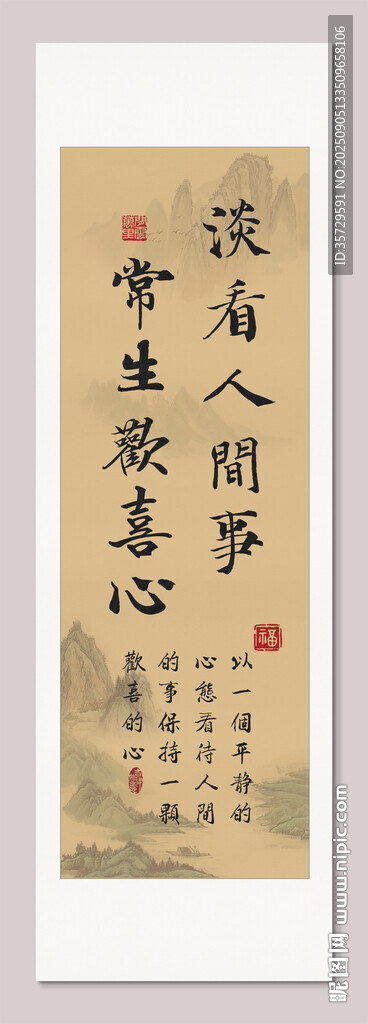 淡看人間事
常生歡喜心
福
以一個平靜的
心態看待人間
的事保持一顆
歡喜的心
ID:35729591 NO:20250905133509658106
昵图网 www.nipic.com